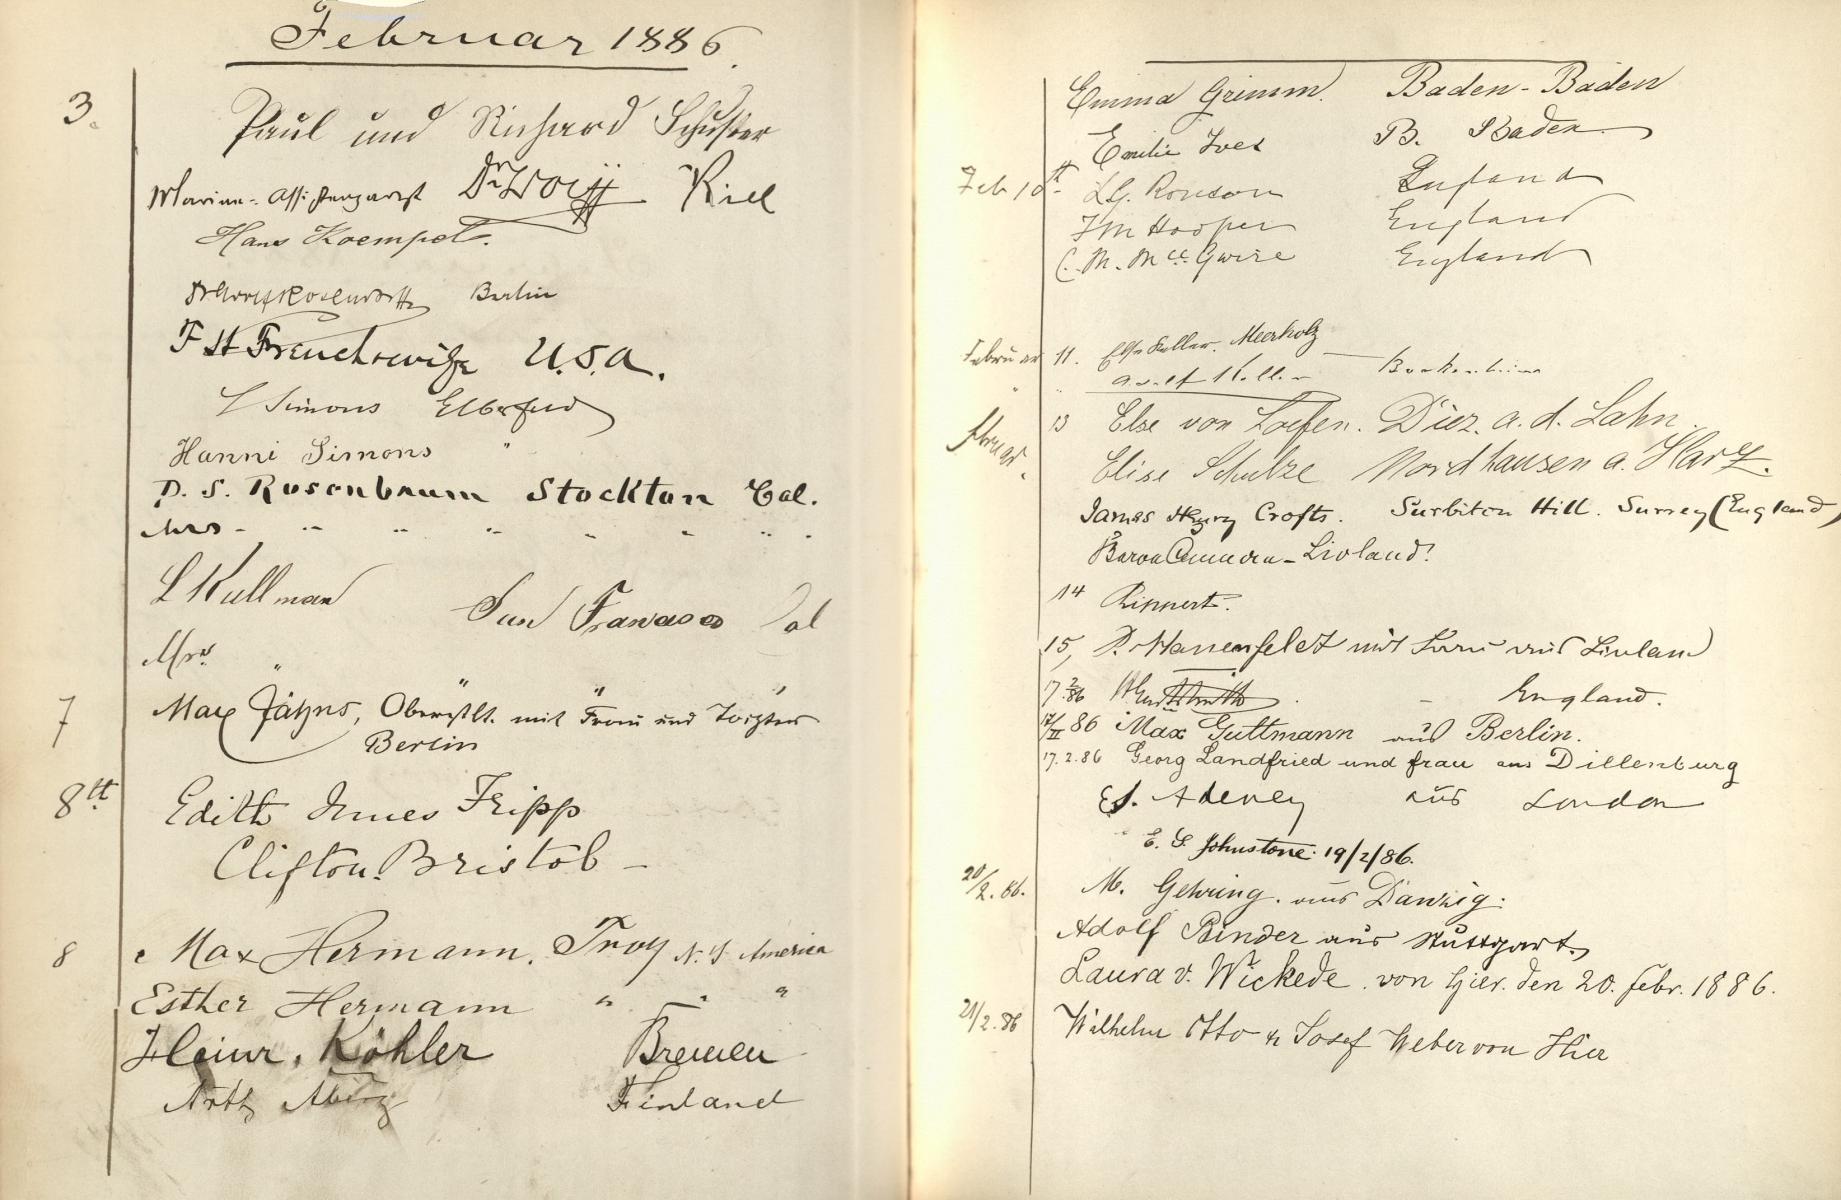 Februar 1886.
3.
Paul und Richard Schuster
Marine-Assistenzarzt Dr Kiel
Hans Koempel.
Berlin
F U.S.A.
L Simons Elberfeld
Hanni Simons "
D. S. Rosenbaum Stockton Cal.
Mrs - " " " " " " "
L Kullman San Francisco Cal
Mrs " " " "
7 Max Jähns, Oberstlt. mit Frau und Tochter
Berlin
8tt Edith Innes Fripp
Clifton. Bristol -
8 Max Hermann. Troy N.Y. America
Esther Hermann " " "
Heinr. Köhler Bremen
Finland
Emma Grimm. Baden-Baden
Emilie Ives B. Baden
Feb 10th L.G. England
J M Hooper England
C. M. Mcc. Gwire England
Februar 11. Else Keller. Meerholz
" "
13 Else von Loefen. Diez a. d. Lahn.
Elise Schulze Nordhausen a. Harz.
James Henry Crofts. Surbiton Hill. Surrey (England)
Livland!
14 Rippert.
15, mit Frau aus Livland
17 2/86 England.
17/II 86 Max Guttmann aus Berlin.
17.2.86 Georg Landfried und frau aus Dillenburg
Adeney aus London
E. G. Johnstone: 19/2/86.
20/2. 86. M. Gehring. aus Danzig.
Adolf Binder aus Stuttgart.
Laura v. Wickede. von hier. den 20. febr. 1886.
21/2. 86 Wilhelm Otto & Josef Weber von Hier